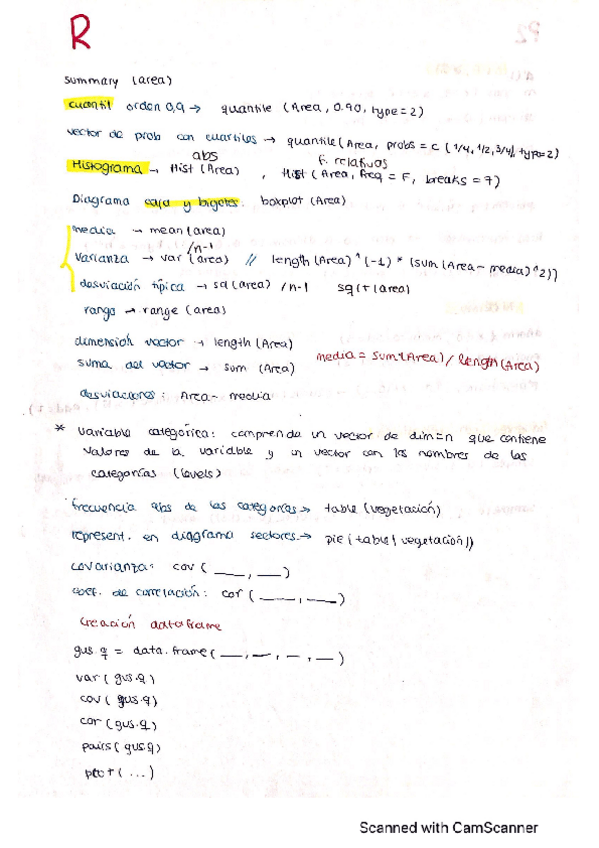 R
summary (area)
cuantil orden 0,9 → quantile (Area, 0.90, type=2)
vector de prob con cuartiles → quantile (Area, probs = c (1/4, 1/2, 3/4), type=2)
abs f. relativas
Histograma → Hist (Area) , Hist (Area, Freq = F, breaks = 7)
Diagrama caja y bigotes: boxplot (Area)
media → mean (area)
/n-1
Varianza → var (area) // length (Area)^(-1) * (sum (Area - media)^2))
desviación típica → sd (area) /n-1 sqrt (area)
rango → range (area)
dimension vector → length (Area)
suma del vector → sum (Area)
media = sum (Area) / length (Area)
desviaciones: Area - media
* Variable categórica: comprende un vector de dim=n que contiene
valores de la variable y un vector con los nombres de las
categorías (levels)
frecuencia abs de las categorías → table (vegetación)
represent. en diagrama sectores → pie (table (vegetación))
covarianza: cov ( ___, ___ )
coef. de correlación: cor ( ___, ___ )
Creación dataframe
gus.q = data.frame ( __, __, __, __ )
var (gus.q)
cov (gus.q)
cor (gus.q)
pairs (gus.q)
plot (...)
Scanned with CamScanner